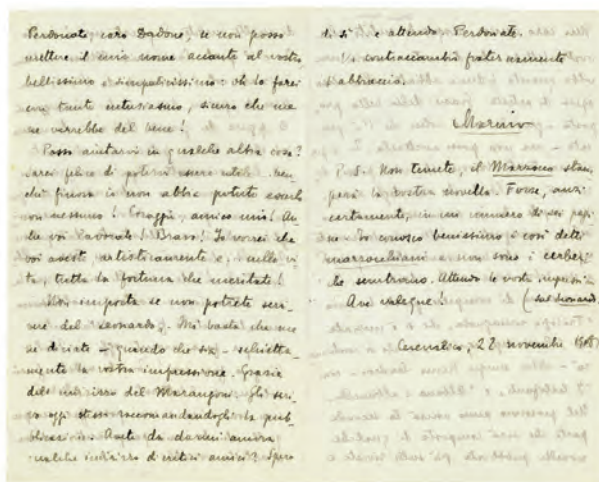 Perdonate, caro Dadone, se non posso
mettere il mio nome accanto al vostro
bellissimo e simpaticissimo: oh lo farei
con tanto entusiasmo, sicuro che me
ne verrebbe del bene!
Posso aiutarvi in qualche altra cosa?
Sarei felice di potervi essere utile, ben
chè finora io non abbia potuto esserlo
con nessuno! Coraggio, amico mio! An
che voi lavorate! Bravo! Io vorrei che
voi aveste, artisticamente e, nella vi
ta, tutta la fortuna che meritate!
Non importa se non potrete scri-
vere del Leonardo. Mi basta che me
ne diciate - quando che sia - schietta-
mente la vostra impressione. Grazie
dell'indirizzo del Marangoni. Gli scri-
vo oggi stesso raccomandandogli la pub
blicazione. Avete da darmi ancora
qualche indirizzo di critici amici? Spero
di sì e attendo. Perdonate.
e contraccambio fraternamente
l'abbraccio.
Marino
P. S. Non temete, il Marzocco stam
perà la vostra novella. Forse, anzi
certamente, in un numero di sei pagi
ne. Io conosco benissimo i così detti
marzocchiani e non sono i cerberi
che sembrano. Attendo la vostra impressione
Ave valeque! (sul Leonardo
Cesenatico, 22 novembre